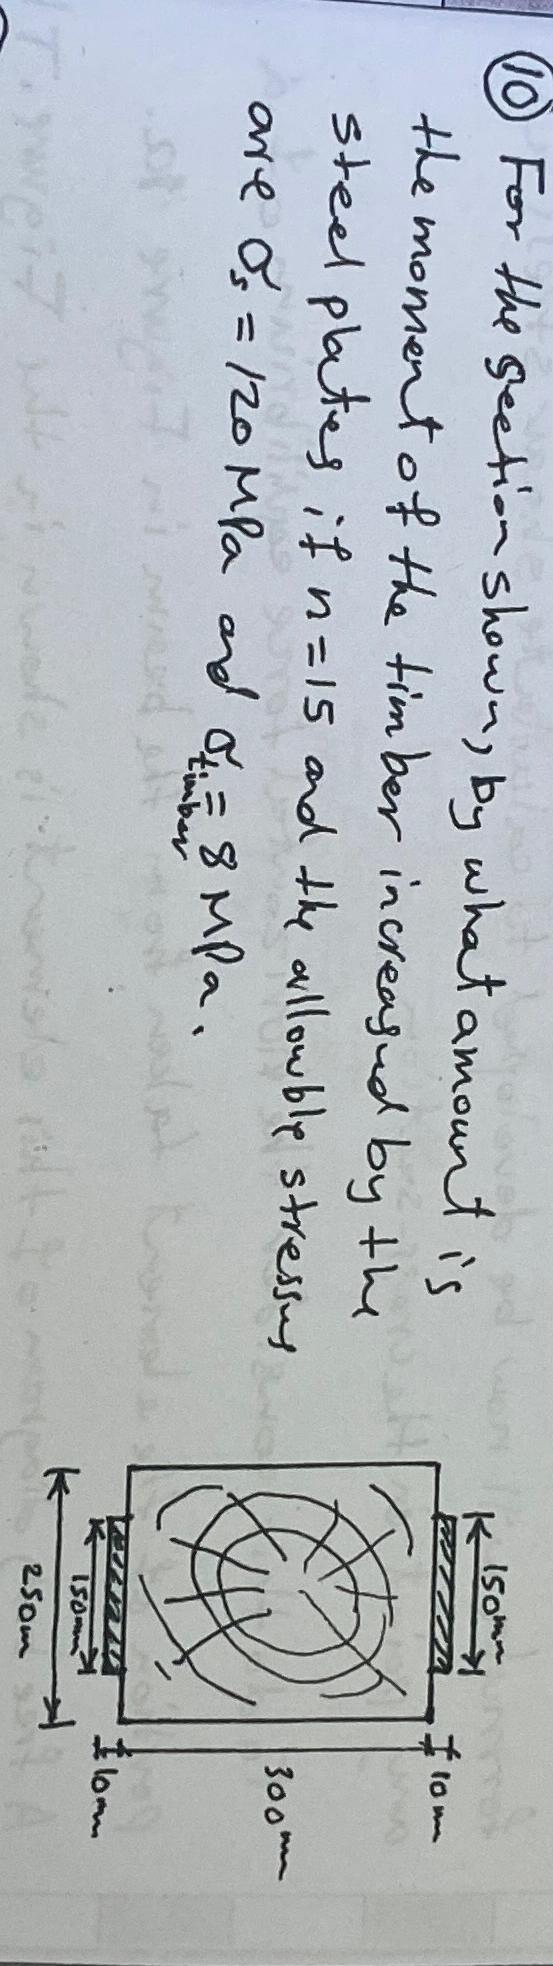 10 For the section shown, by what amount is
the moment of the timber increased by the
steel plates if n = 15 and the allowble stresses
are σs = 120 MPa and σtimber = 8 MPa.
150mm
10m
300mm
150mm
10mm
250m